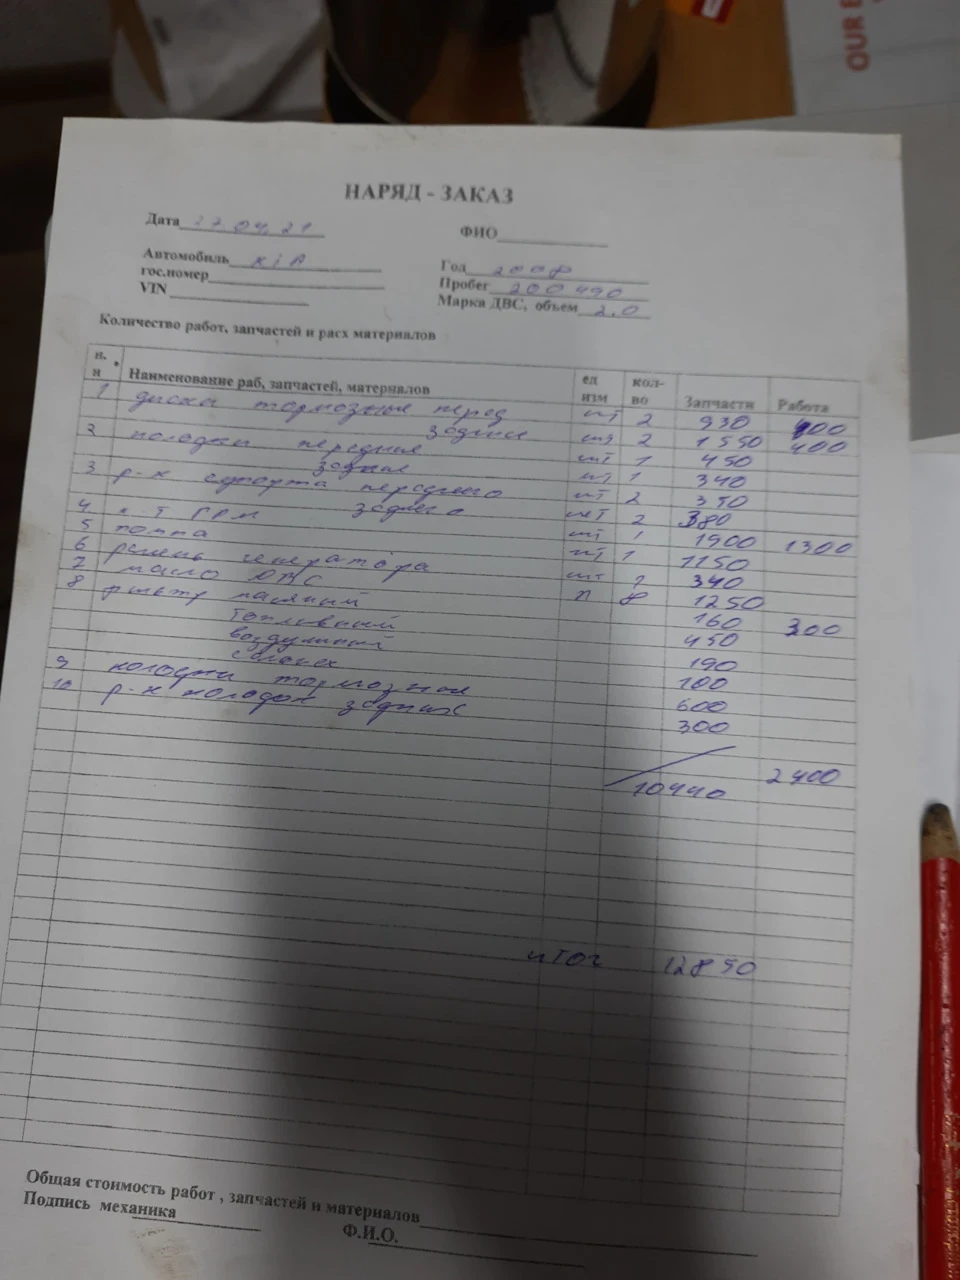 OUR
НАРЯД - ЗАКАЗ
Дата 27.04.21 ФИО
Автомобиль KIA Год 2008
гос.номер Пробег 200 490
VIN Марка ДВС, объем 2,0
Количество работ, запчастей и расх материалов
п. н Наименование раб, запчастей, материалов ед изм кол-во Запчасти Работа
1 диски тормозные перед шт 2 930 400
задние шт 2 1550 400
2 колодки передние шт 1 450
задние шт 1 340
3 р-к супорта переднего шт 2 350
заднего шт 2 380
4 к-т ГРМ шт 1 1900 1300
5 помпа шт 1 1150
6 ремень генератора шт 2 340
7 масло ДВС л 8 1250
8 фильтр масляный 160 300
топливный 450
воздушный 190
салона 100
9 колодки тормозные 600
10 р-к колодок задних 300
10440 2400
итог 12850
Общая стоимость работ , запчастей и материалов
Подпись механика Ф.И.О.